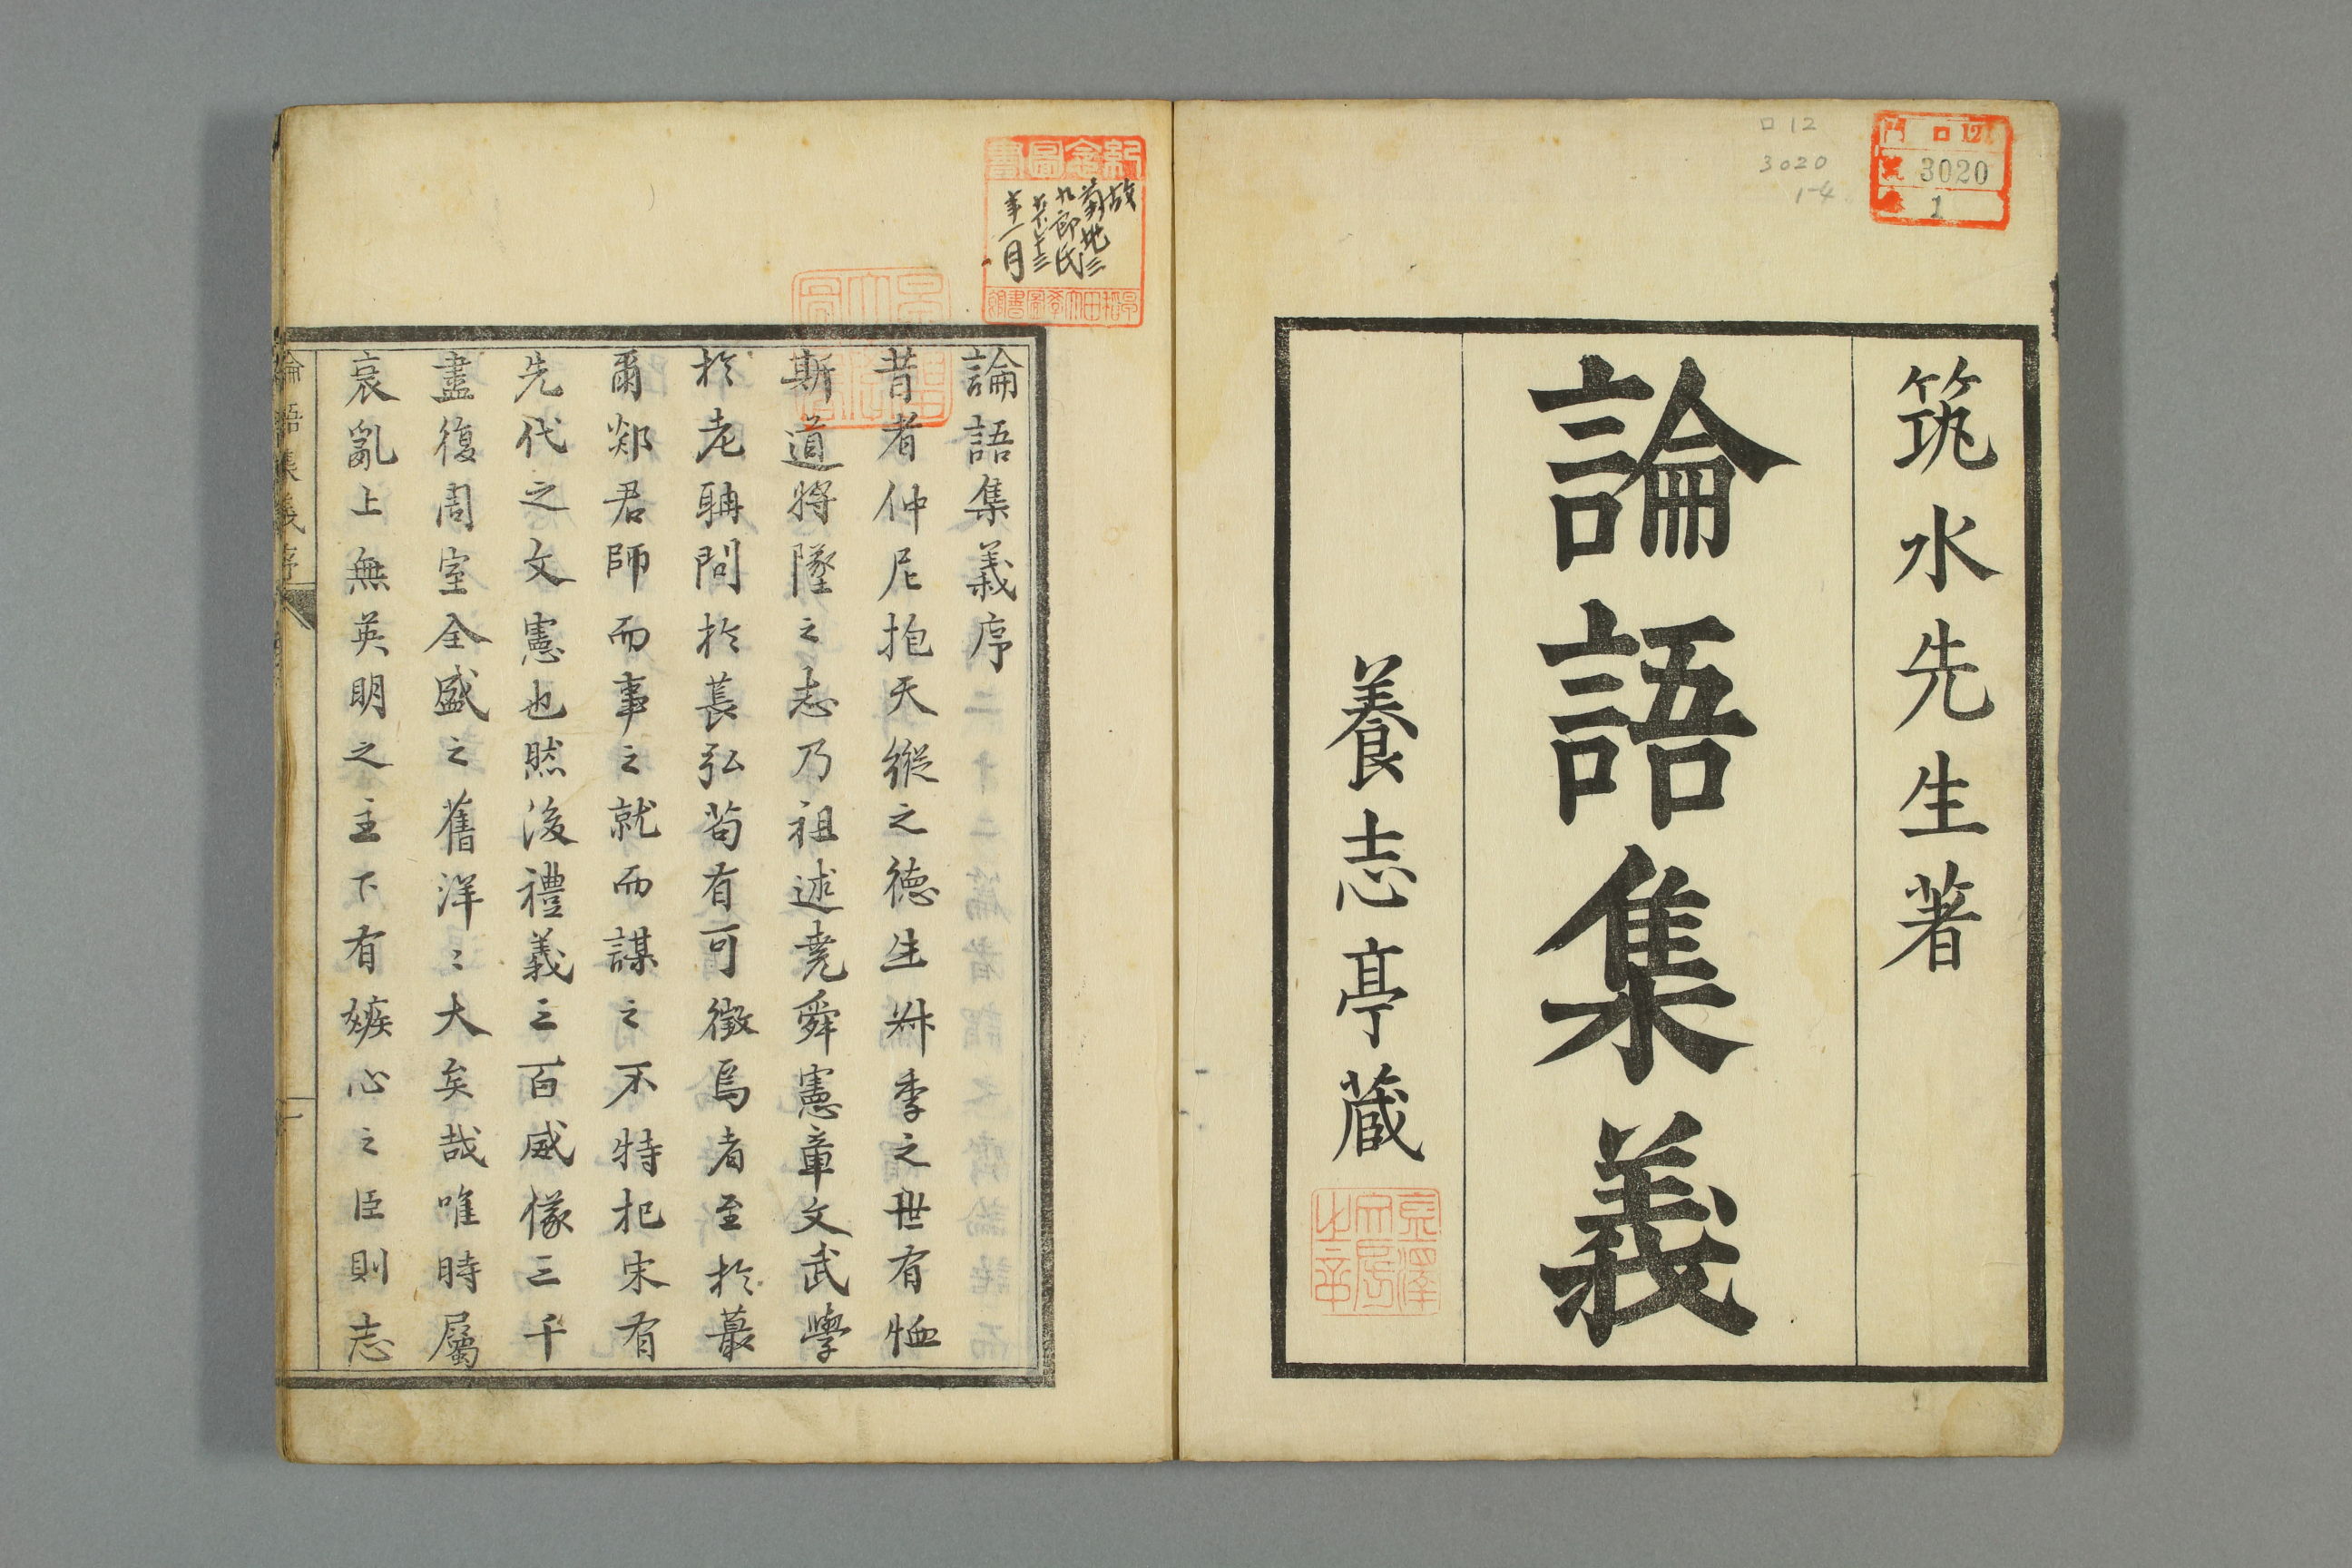 門 ロ12
號 3020
1
ロ12
3020
1-4
筑水先生著
論語集義
養志亭藏
紀念圖書
故
菊地三
九郎氏
大正十三
年一月
早稻田大學圖書館
論語集義序
昔者仲尼抱天縱之德生叔季之世有恤
斯道將墜之志乃祖述堯舜憲章文武學
於老聃問於萇弘苟有可徵焉者至於蕞
爾郯君師而事之就而謀之不特杞宋有
先代之文憲也然後禮義三百威儀三千
盡復周室全盛之舊洋〻大矣哉唯時屬
衰亂上無英明之主下有嫉心之臣則志
論語集義序
一